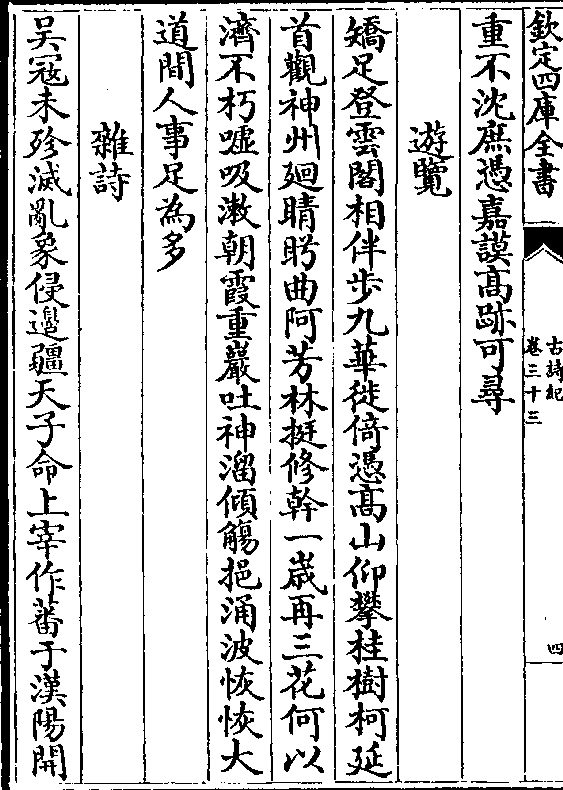 欽定四庫全書
古詩紀
卷三十三
四
重不沈庶憑嘉謨髙跡可尋
遊覽
矯足登雲閣相伴步九華徙倚憑髙山仰攀桂樹柯延
首觀神州廻睛盻曲阿芳林挺修幹一歳再三花何以
濟不朽噓吸漱朝霞重巖吐神溜傾觴挹涌波恢恢大
道間人事足為多
雜詩
吳寇未殄滅亂象侵邉疆天子命上宰作蕃于漢陽開